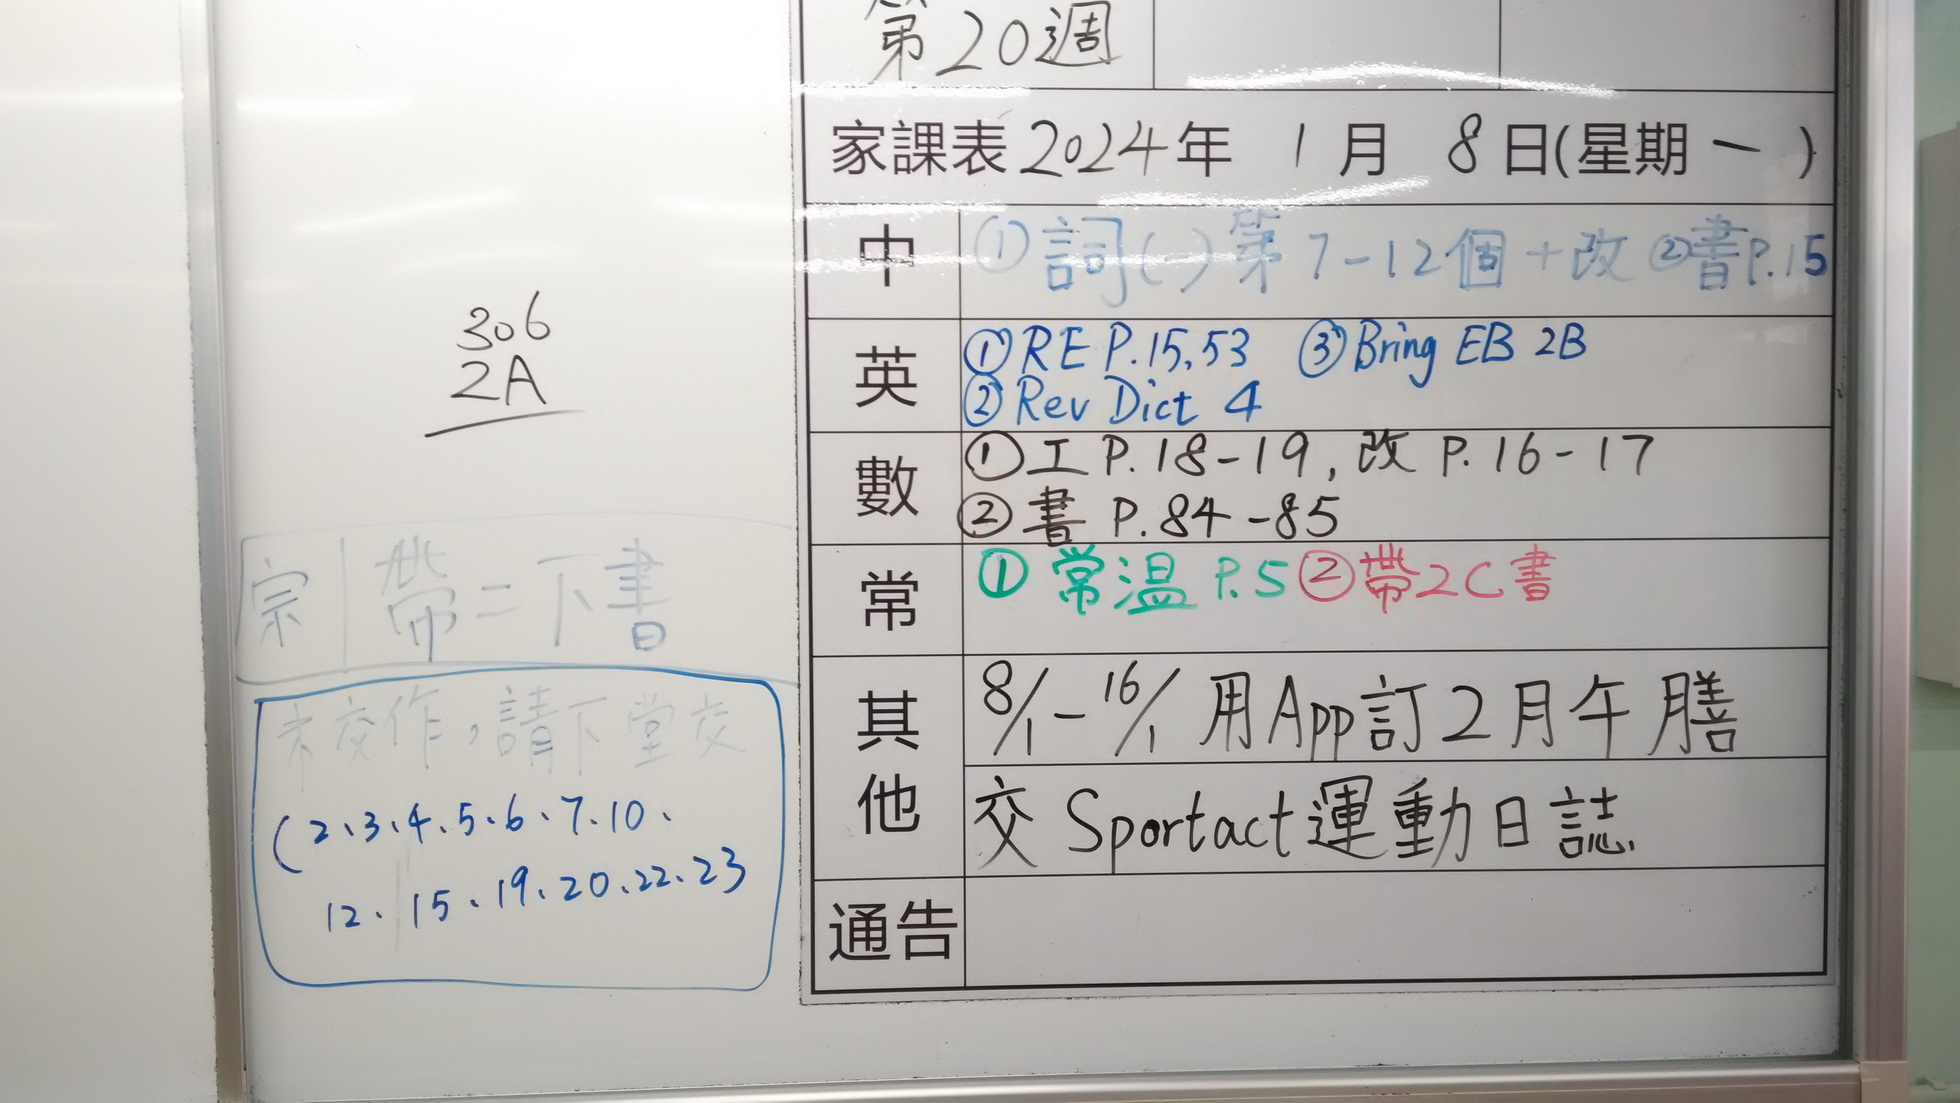 第20週
家課表2024年 1月 8日(星期一)
中 ①詞(一)第7-12個+改 ②書P.15
英 ①RE P.15,53 ③Bring EB 2B
②Rev Dict 4
數 ①工P.18-19,改P.16-17
②書 P.84-85
常 ①常温 P.5 ②帶2C書
其他 8/1-16/1 用App訂2月午膳
交Sportact運動日誌
通告
306
2A
宗 帶二下書
未交作,請下堂交
(2、3、4、5、6、7、10、
12、15、19、20、22、23